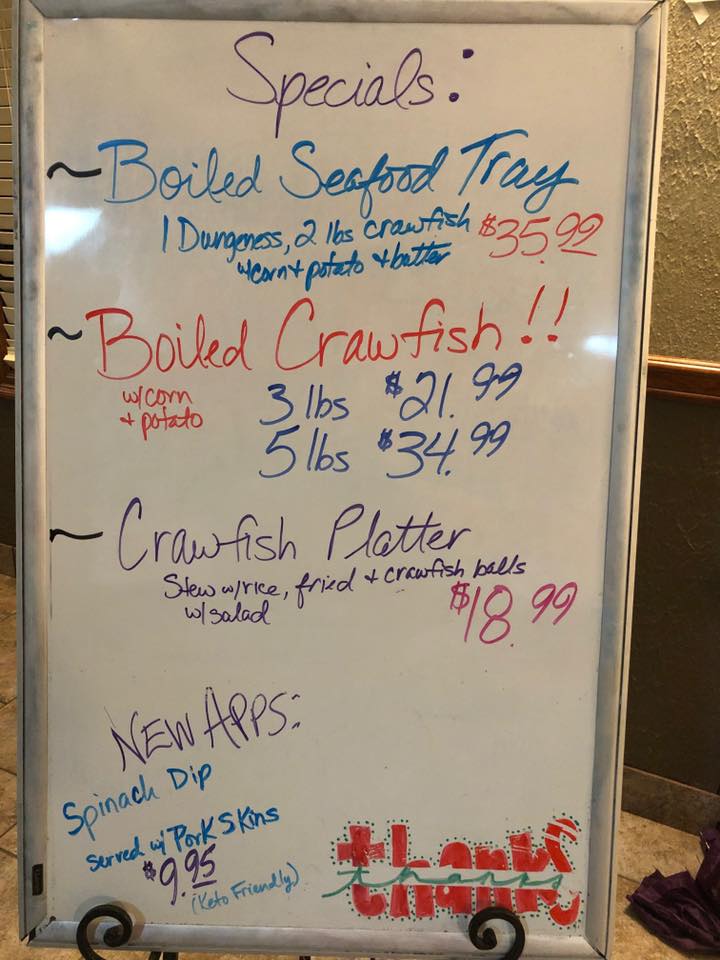 Specials:
~ Boiled Seafood Tray
1 Dungeness, 2 lbs crawfish $35.99
w/corn + potato + butter
~ Boiled Crawfish!!
w/corn
+ potato
3 lbs $21.99
5 lbs $34.99
~ Crawfish Platter
Stew w/rice, fried + crawfish balls
w/salad
$18.99
NEW APPS:
Spinach Dip
served w/ Pork Skins
$9.95
(Keto Friendly)
thanks
thanks